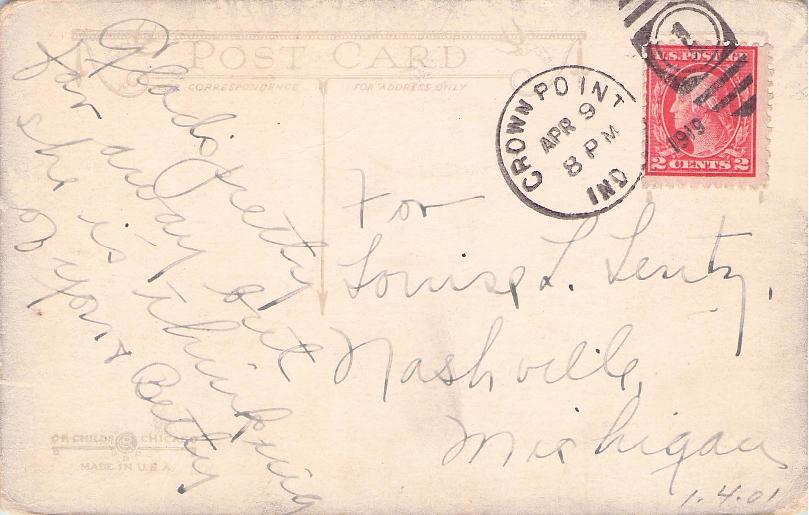 POST CARD
CORRESPONDENCE
FOR ADDRESS ONLY
Gladis pretty
far away but
she is thinking
of you
Betty
CROWN POINT
APR 9
8 PM
IND
1919
1
U.S. POSTAGE
2 CENTS 2
For
Louise L. Lentz,
Nashville,
Michigan
CHILDS
CHICAGO
MADE IN U.S.A.
1.4.01